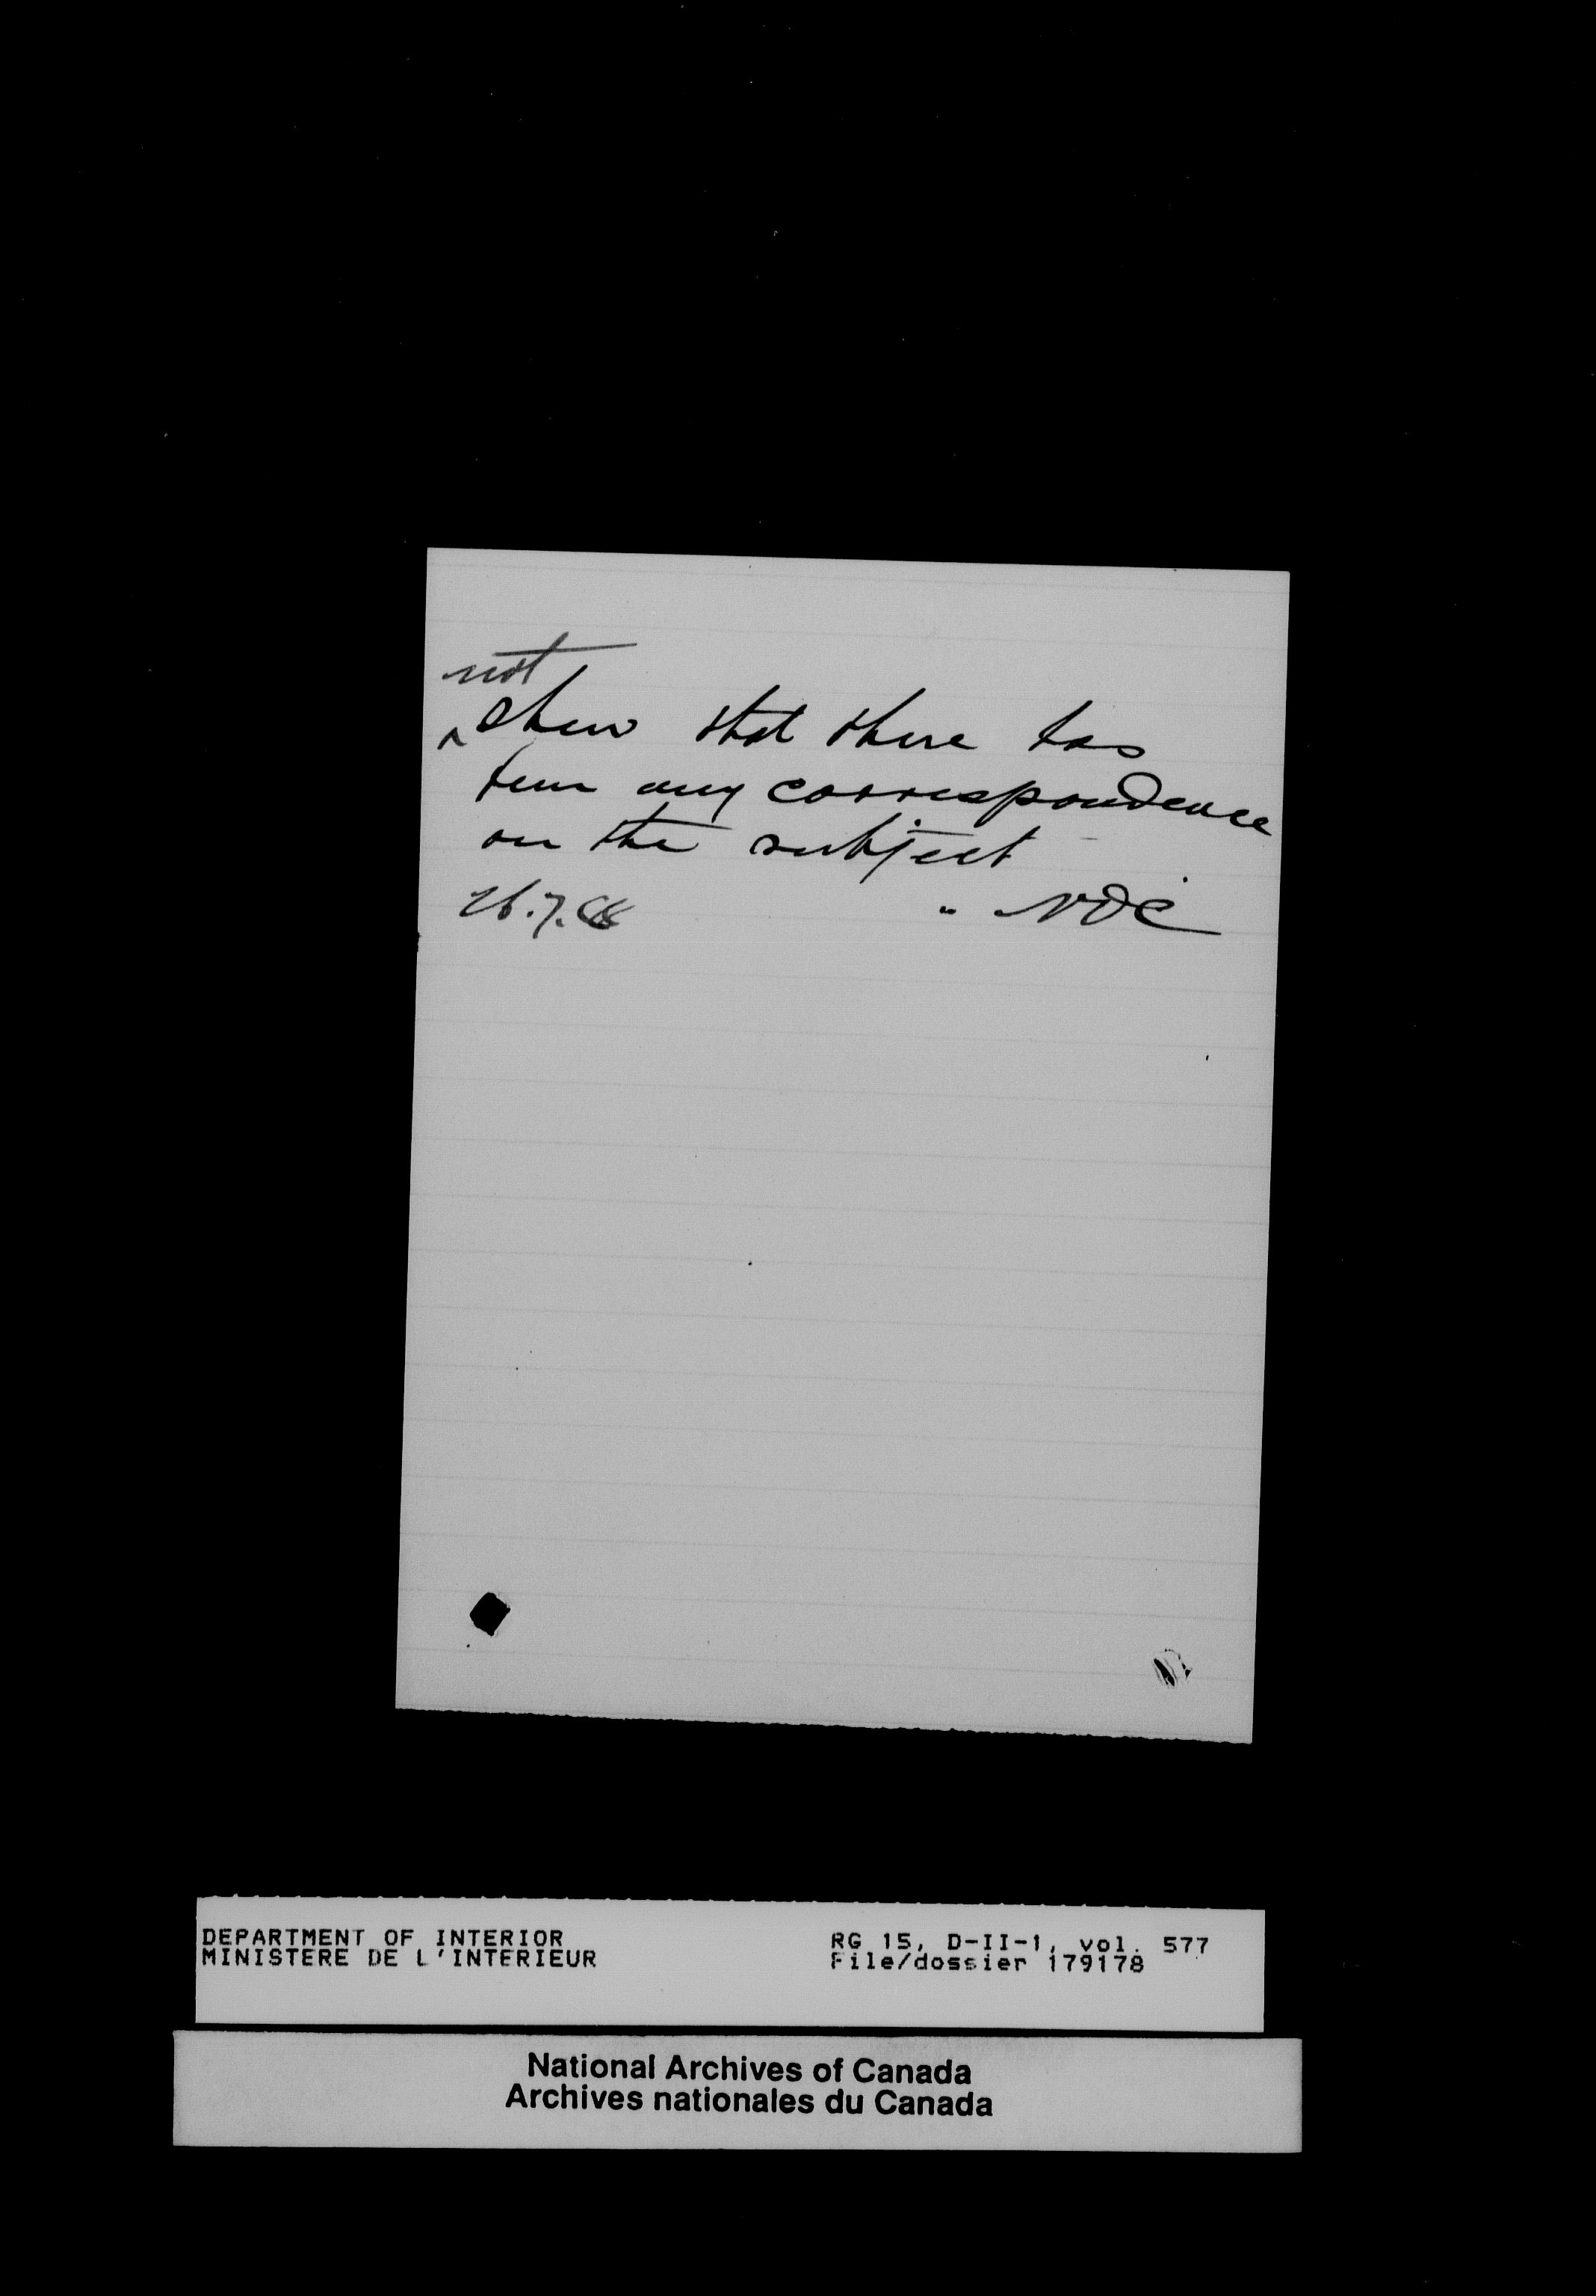 not
^ shew that there has
been any correspondence
on the subject
26.7.88 " NOC
DEPARTMENT OF INTERIOR RG 15, D-II-1, vol. 577
MINISTERE DE L'INTERIEUR File/dossier 179178
National Archives of Canada
Archives nationales du Canada